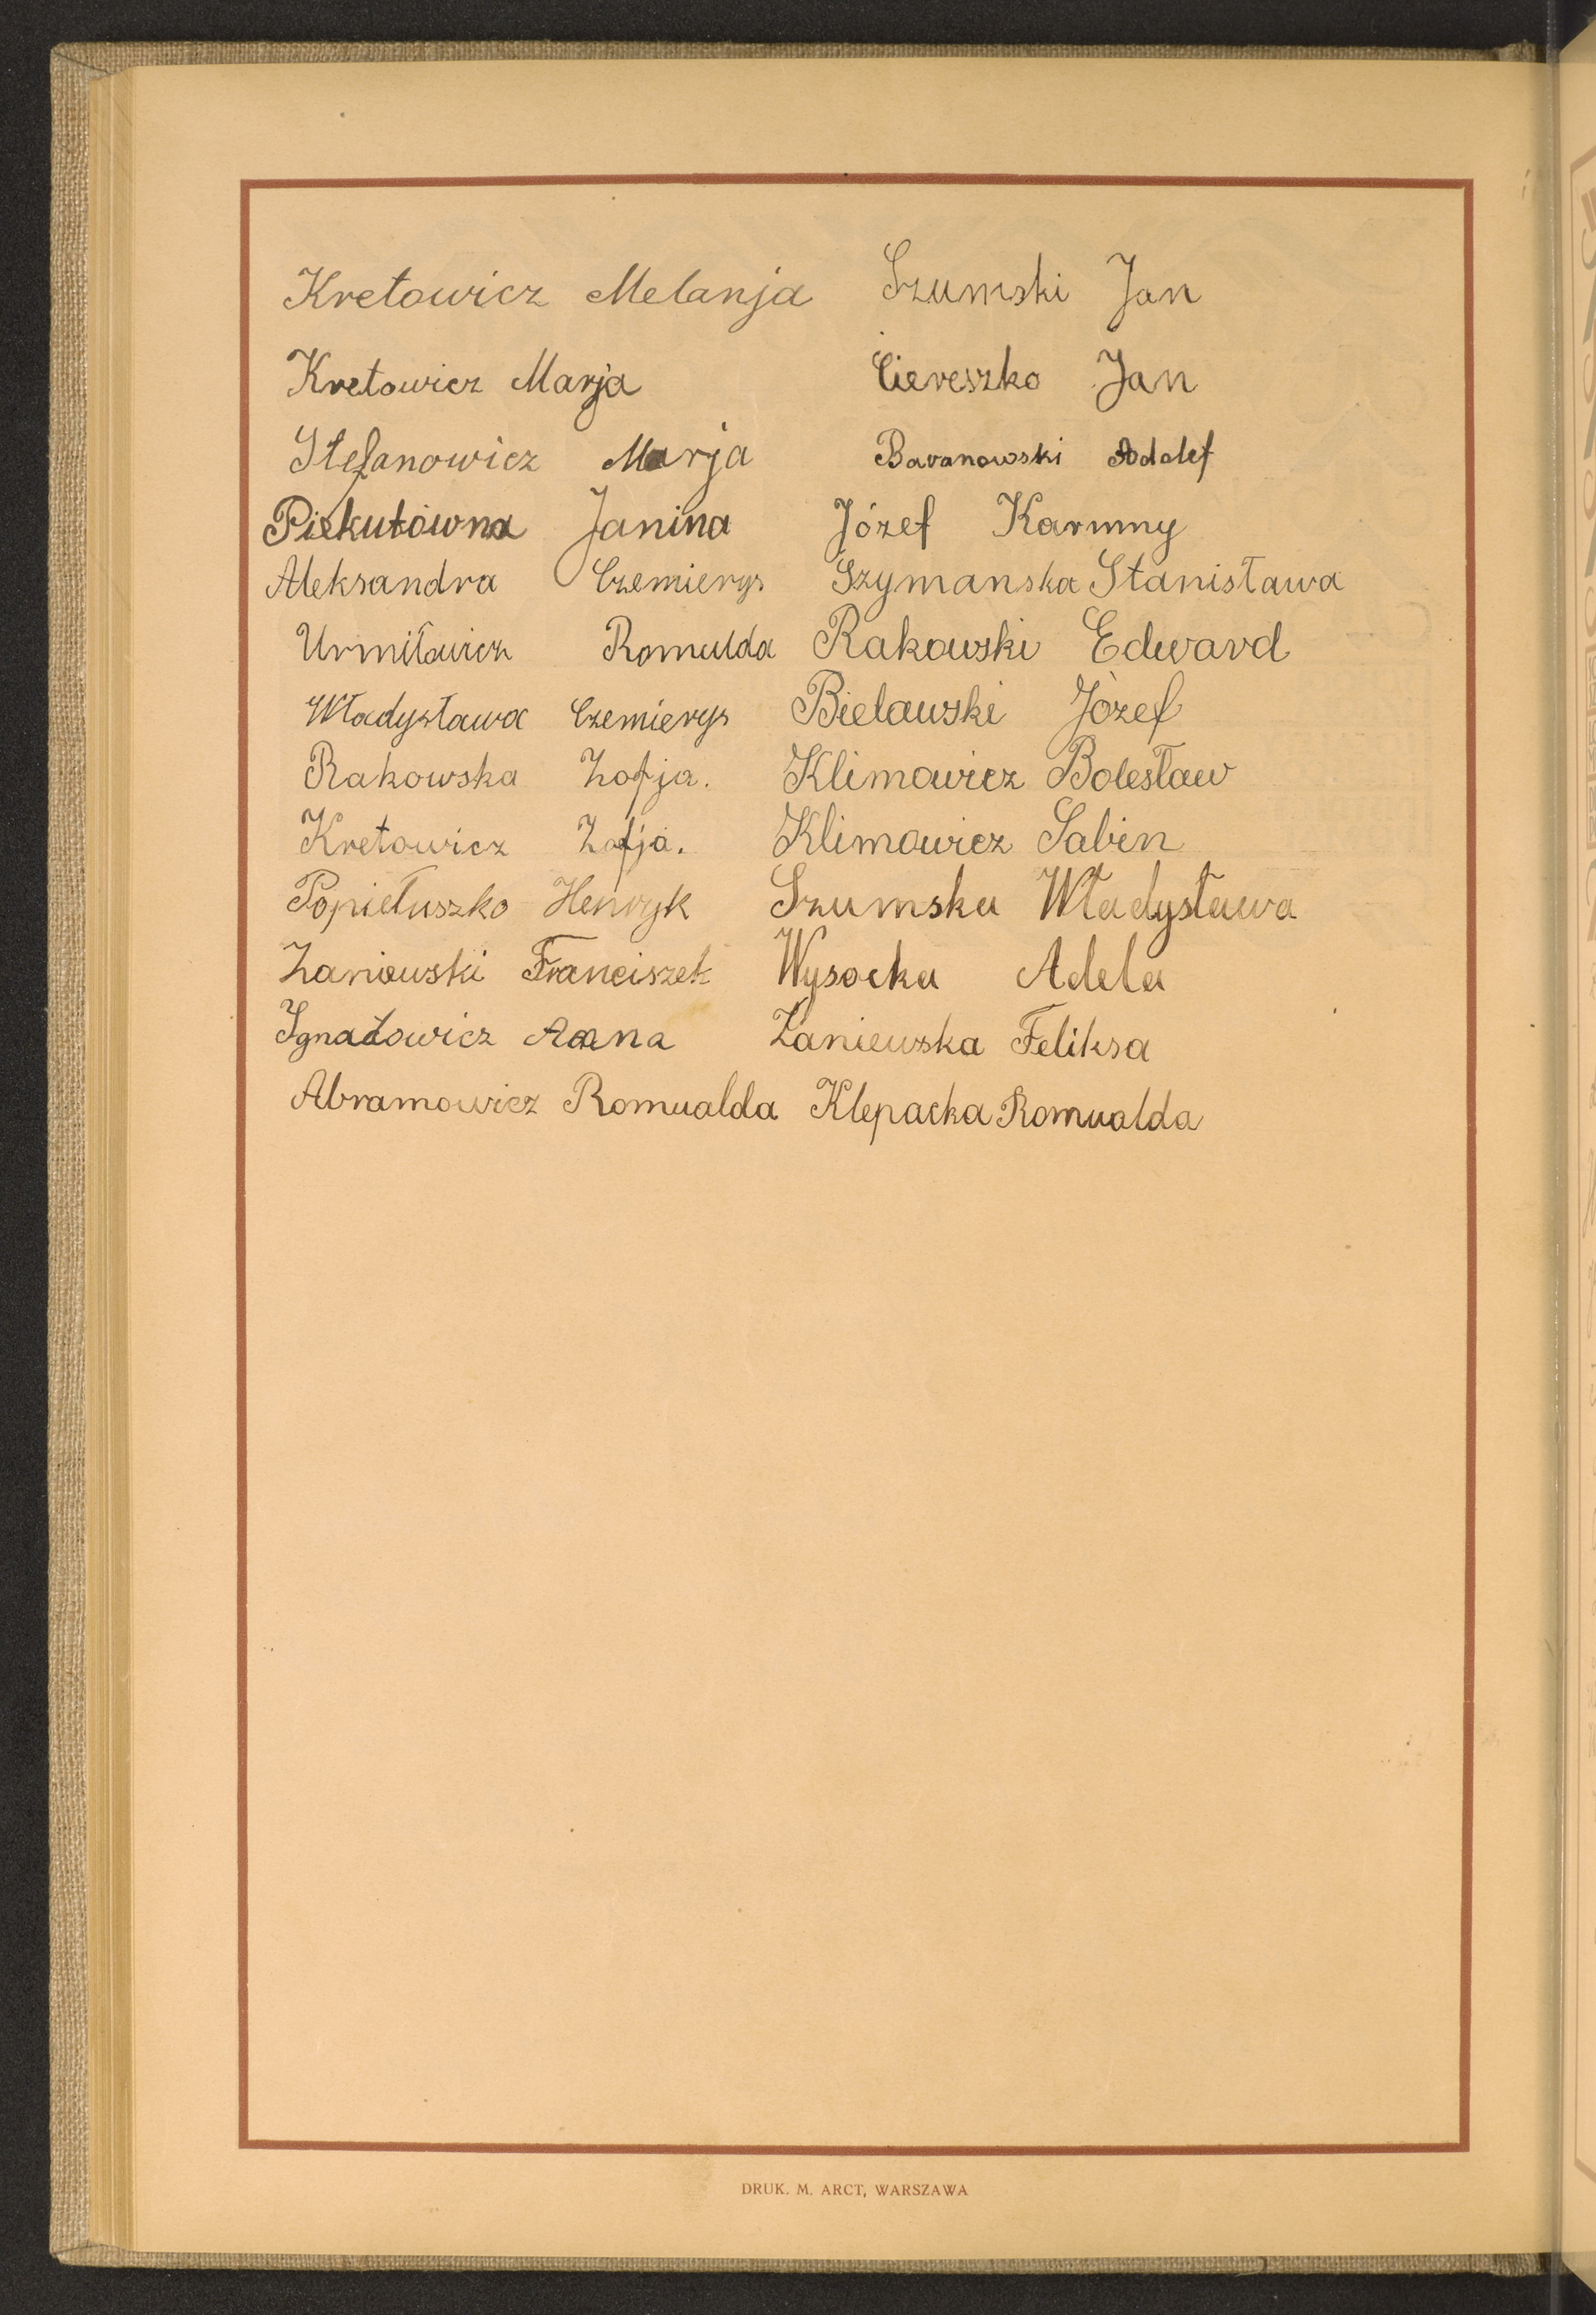 Kretowicz Melanja
Kretowicz Marja
Stefanowicz Marja
Piekutówna Janina
Aleksandra Czemierys
Urmiłowicz Romulda
Władysława Czemierys
Rakowska Zofja.
Kretowicz Zofja.
Popiełuszko Henryk
Zaniewski Franciszek
Ignatowicz Anna
Abramowicz Romualda
Szumski Jan
Ciereszko Jan
Baranowski Adolf
Józef Karmny
Szymanska Stanisława
Rakowski Edward
Bielawski Józef
Klimowicz Bolesław
Klimowicz Sabin
Szumska Władysława
Wysocka Adela
Zaniewska Feliksa
Klepacka Romualda
DRUK. M. ARCT, WARSZAWA